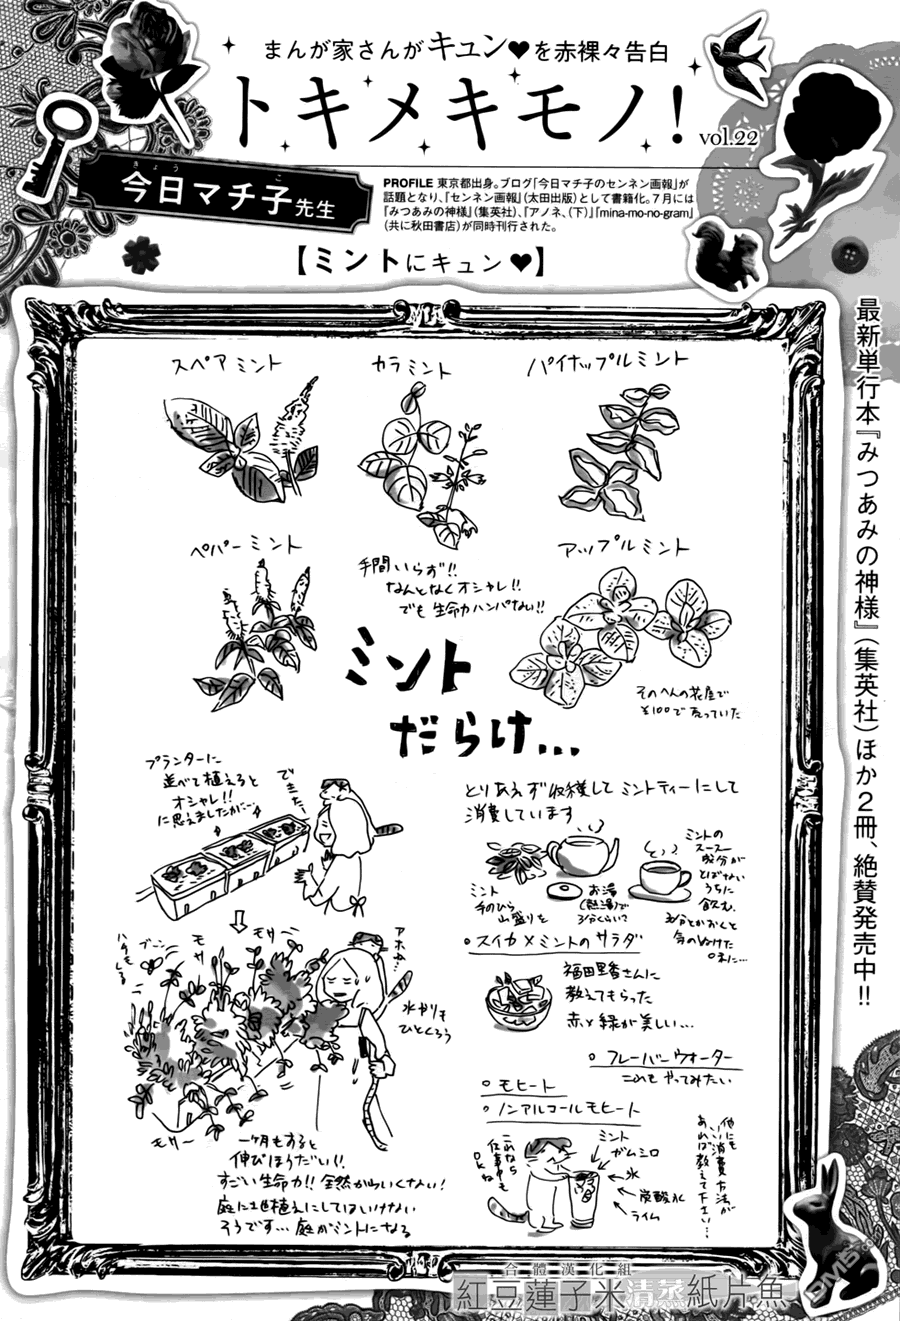 まんが家さんがキュン♥を赤裸々告白
トキメキモノ!
vol.22
きょう こ
今日マチ子先生
PROFILE 東京都出身。ブログ「今日マチ子のセンネン画報」が
話題となり、「センネン画報」(太田出版)として書籍化。7月には
『みつあみの神様』(集英社)、『アノネ、(下)』『mina-mo-no-gram』
(共に秋田書店)が同時刊行された。
【ミントにキュン♥】
最新単行本『みつあみの神様』(集英社)ほか2冊、絶賛発売中!!
スペアミント
カラミント
パイナップルミント
ペパーミント
手間いらず!!
なんとなくオシャレ!!
でも生命力ハンパない!!
アップルミント
そのへんの花屋で
¥100で売っていた
ミント
だらけ…
プランターに
並べて植えると
オシャレ!!
に思えましたが…
できた、
とりあえず収穫してミントティーにして
消費しています
ミント
手のひら
山盛りを
お湯
(熱湯)で
3分くらい?
ミントの
スースー
成分が
とばない
うちに
飲む。
○スイカ×ミントのサラダ
福田里香さんに
教えてもらった
赤×緑が美しい…
○フレーバーウォーター
これもやってみたい
○モヒート
○ノンアルコールモヒート
これなら
仕事中も
OKね
ミント
ガムシロ
氷
炭酸水
ライム
他にも
いい消費方法が
あれば教えて下さい…
ブーン
モサ
モサ〜
アホか…
水やりも
ひとくろう
モサ〜
一ヶ月もすると
伸びほうだい!!
すごい生命力!! 全然かわいくない!
庭に地植えにしてはいけない
そうです… 庭がミントになる
合體漢化組
紅豆蓮子米清蒸紙片魚